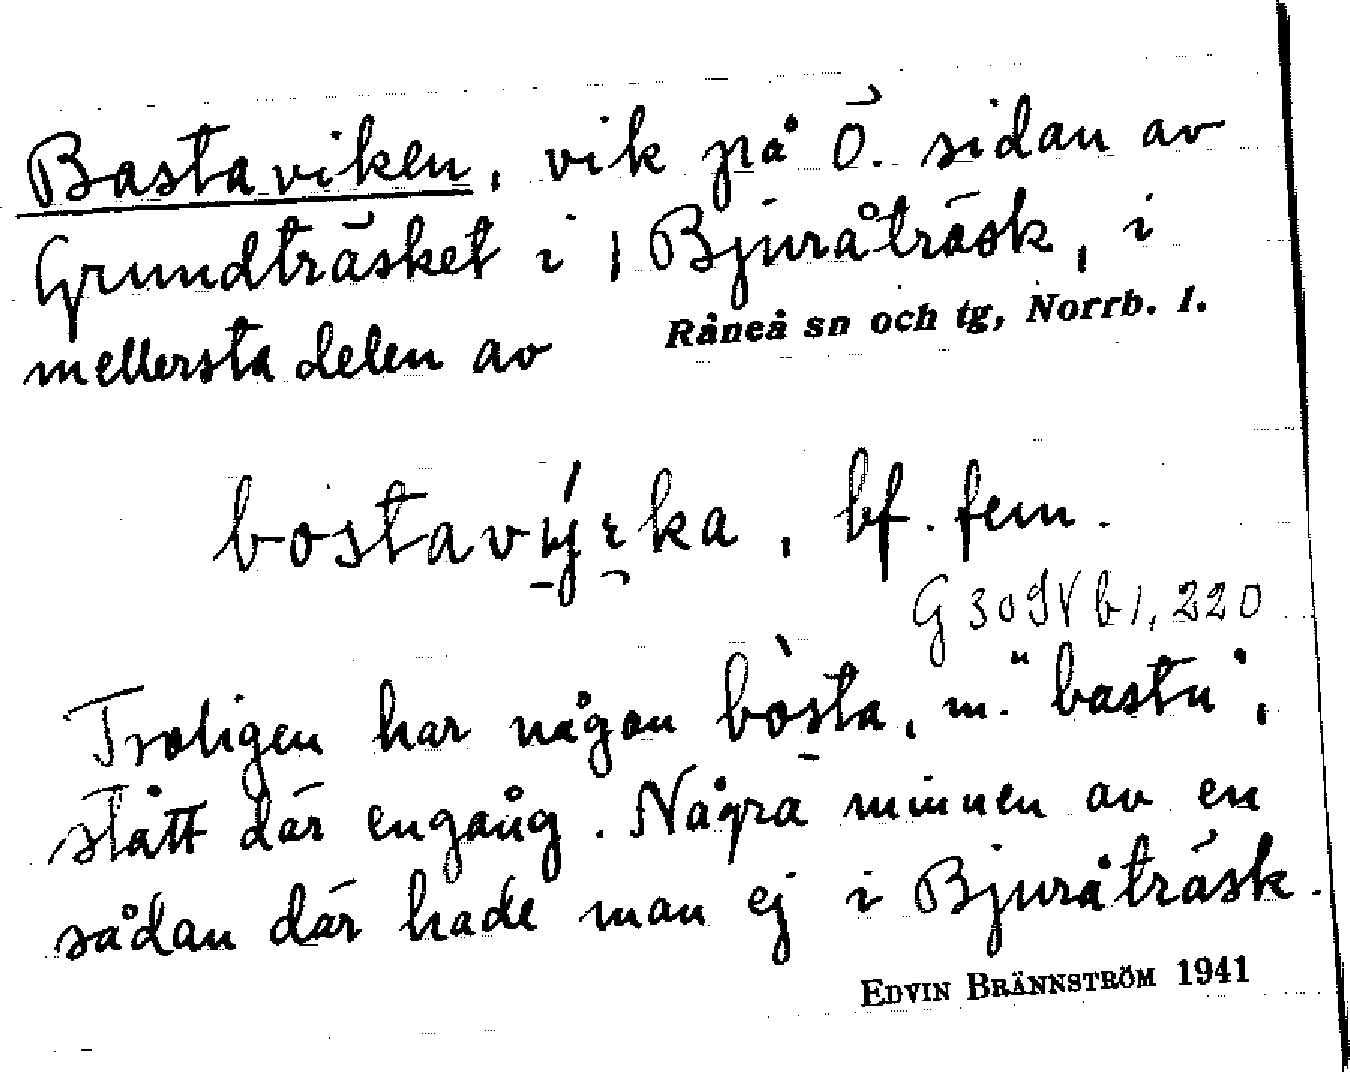 Bastaviken, vik på Ö. sidan av
Grundträsket i Bjuråträsk, i
mellersta delen av Råneå sn och tg, Norrb. l.
bostavýrka, bf. fem.
220
Troligen har någon bòsta, m. "bastu",
stått där engång. Några minnen av en
sådan där hade man ej i Bjuråträsk.
EDVIN BRÄNNSTRÖM 1941